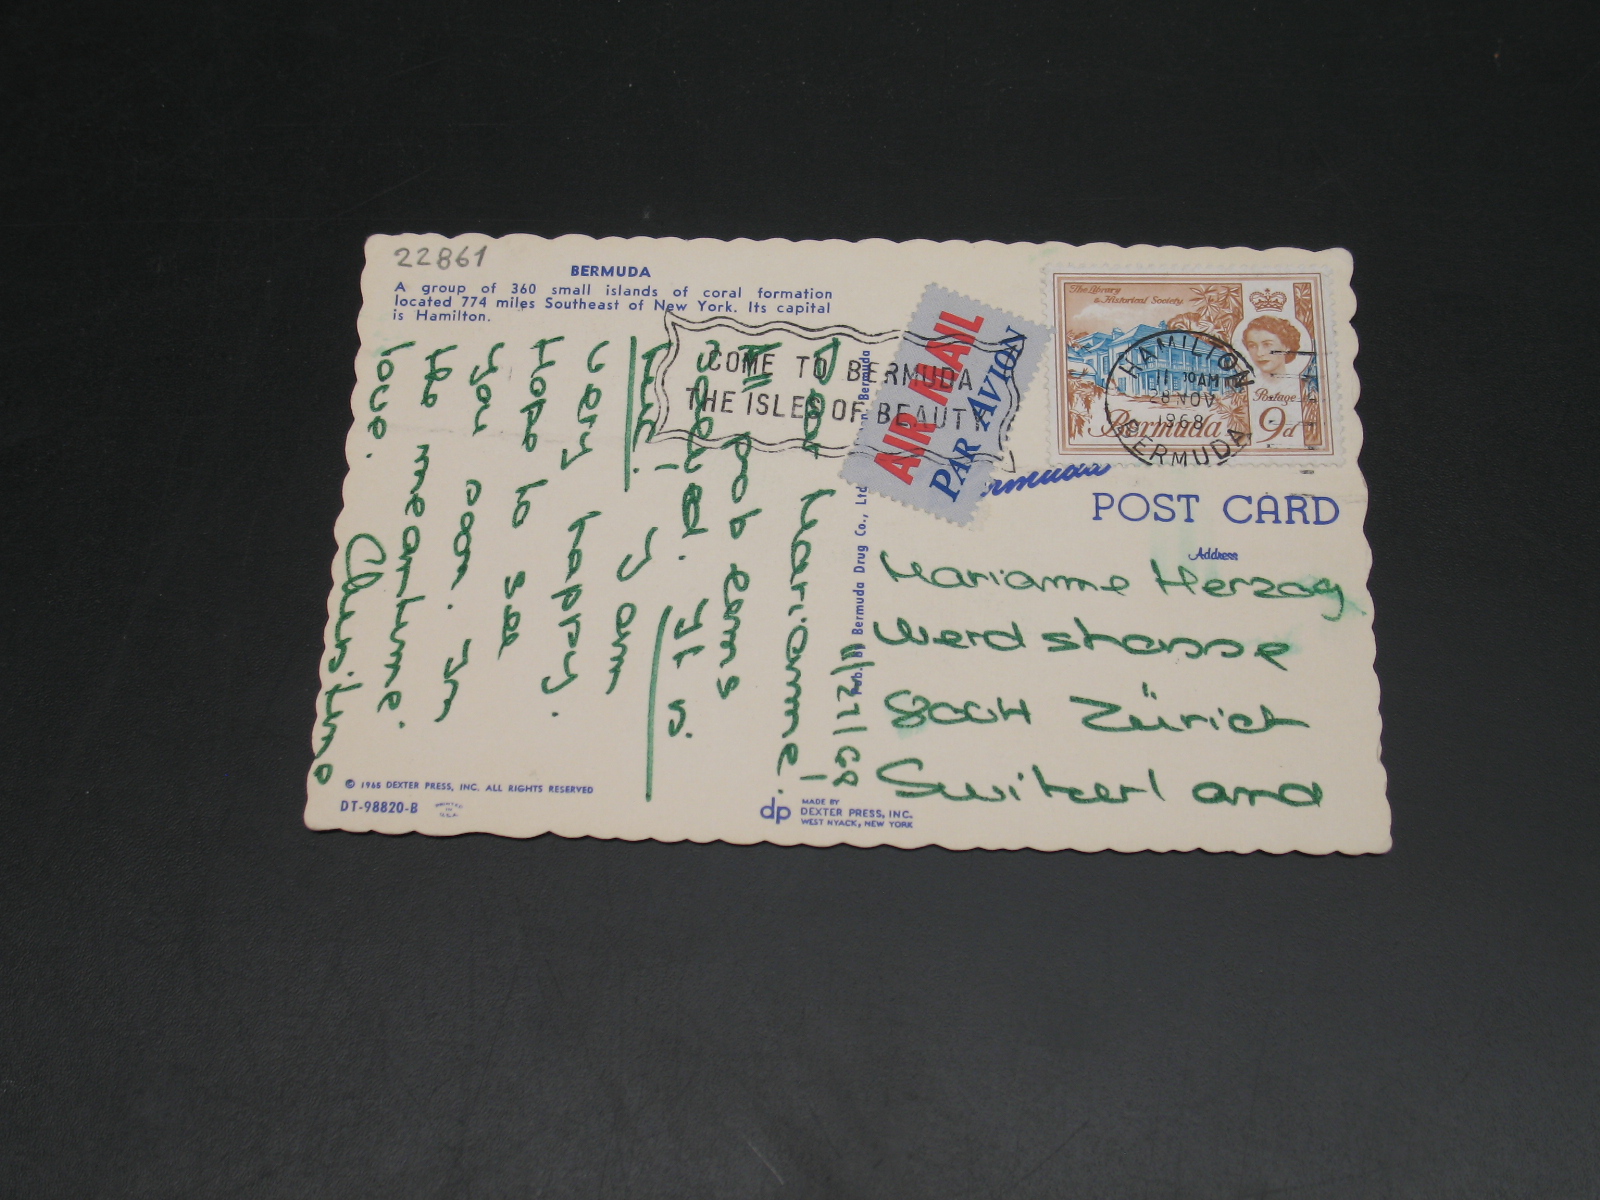 22861
BERMUDA
A group of 360 small islands of coral formation
located 774 miles Southeast of New York. Its capital
is Hamilton.
COME TO BERMUDA
THE ISLES OF BEAUTY
AIR MAIL
PAR AVION
The Library
& Historical Society
HAMILTON
11 30AM
28 NOV
1968
BERMUDA
Postage
Bermuda 9d
POST CARD
Address
Marianne Herzog
Werdstrasse
8004 Zürich
Switzerland
Pub. By Bermuda Drug Co., Ltd.
Bermuda
Dear Marianne!
It is
I am
very happy.
Hope to see
you soon. In
the meantime
love. Christine
© 1965 DEXTER PRESS, INC. ALL RIGHTS RESERVED
DT-98820-B
PRINTED
IN
U.S.A.
dp
MADE BY
DEXTER PRESS, INC.
WEST NYACK, NEW YORK